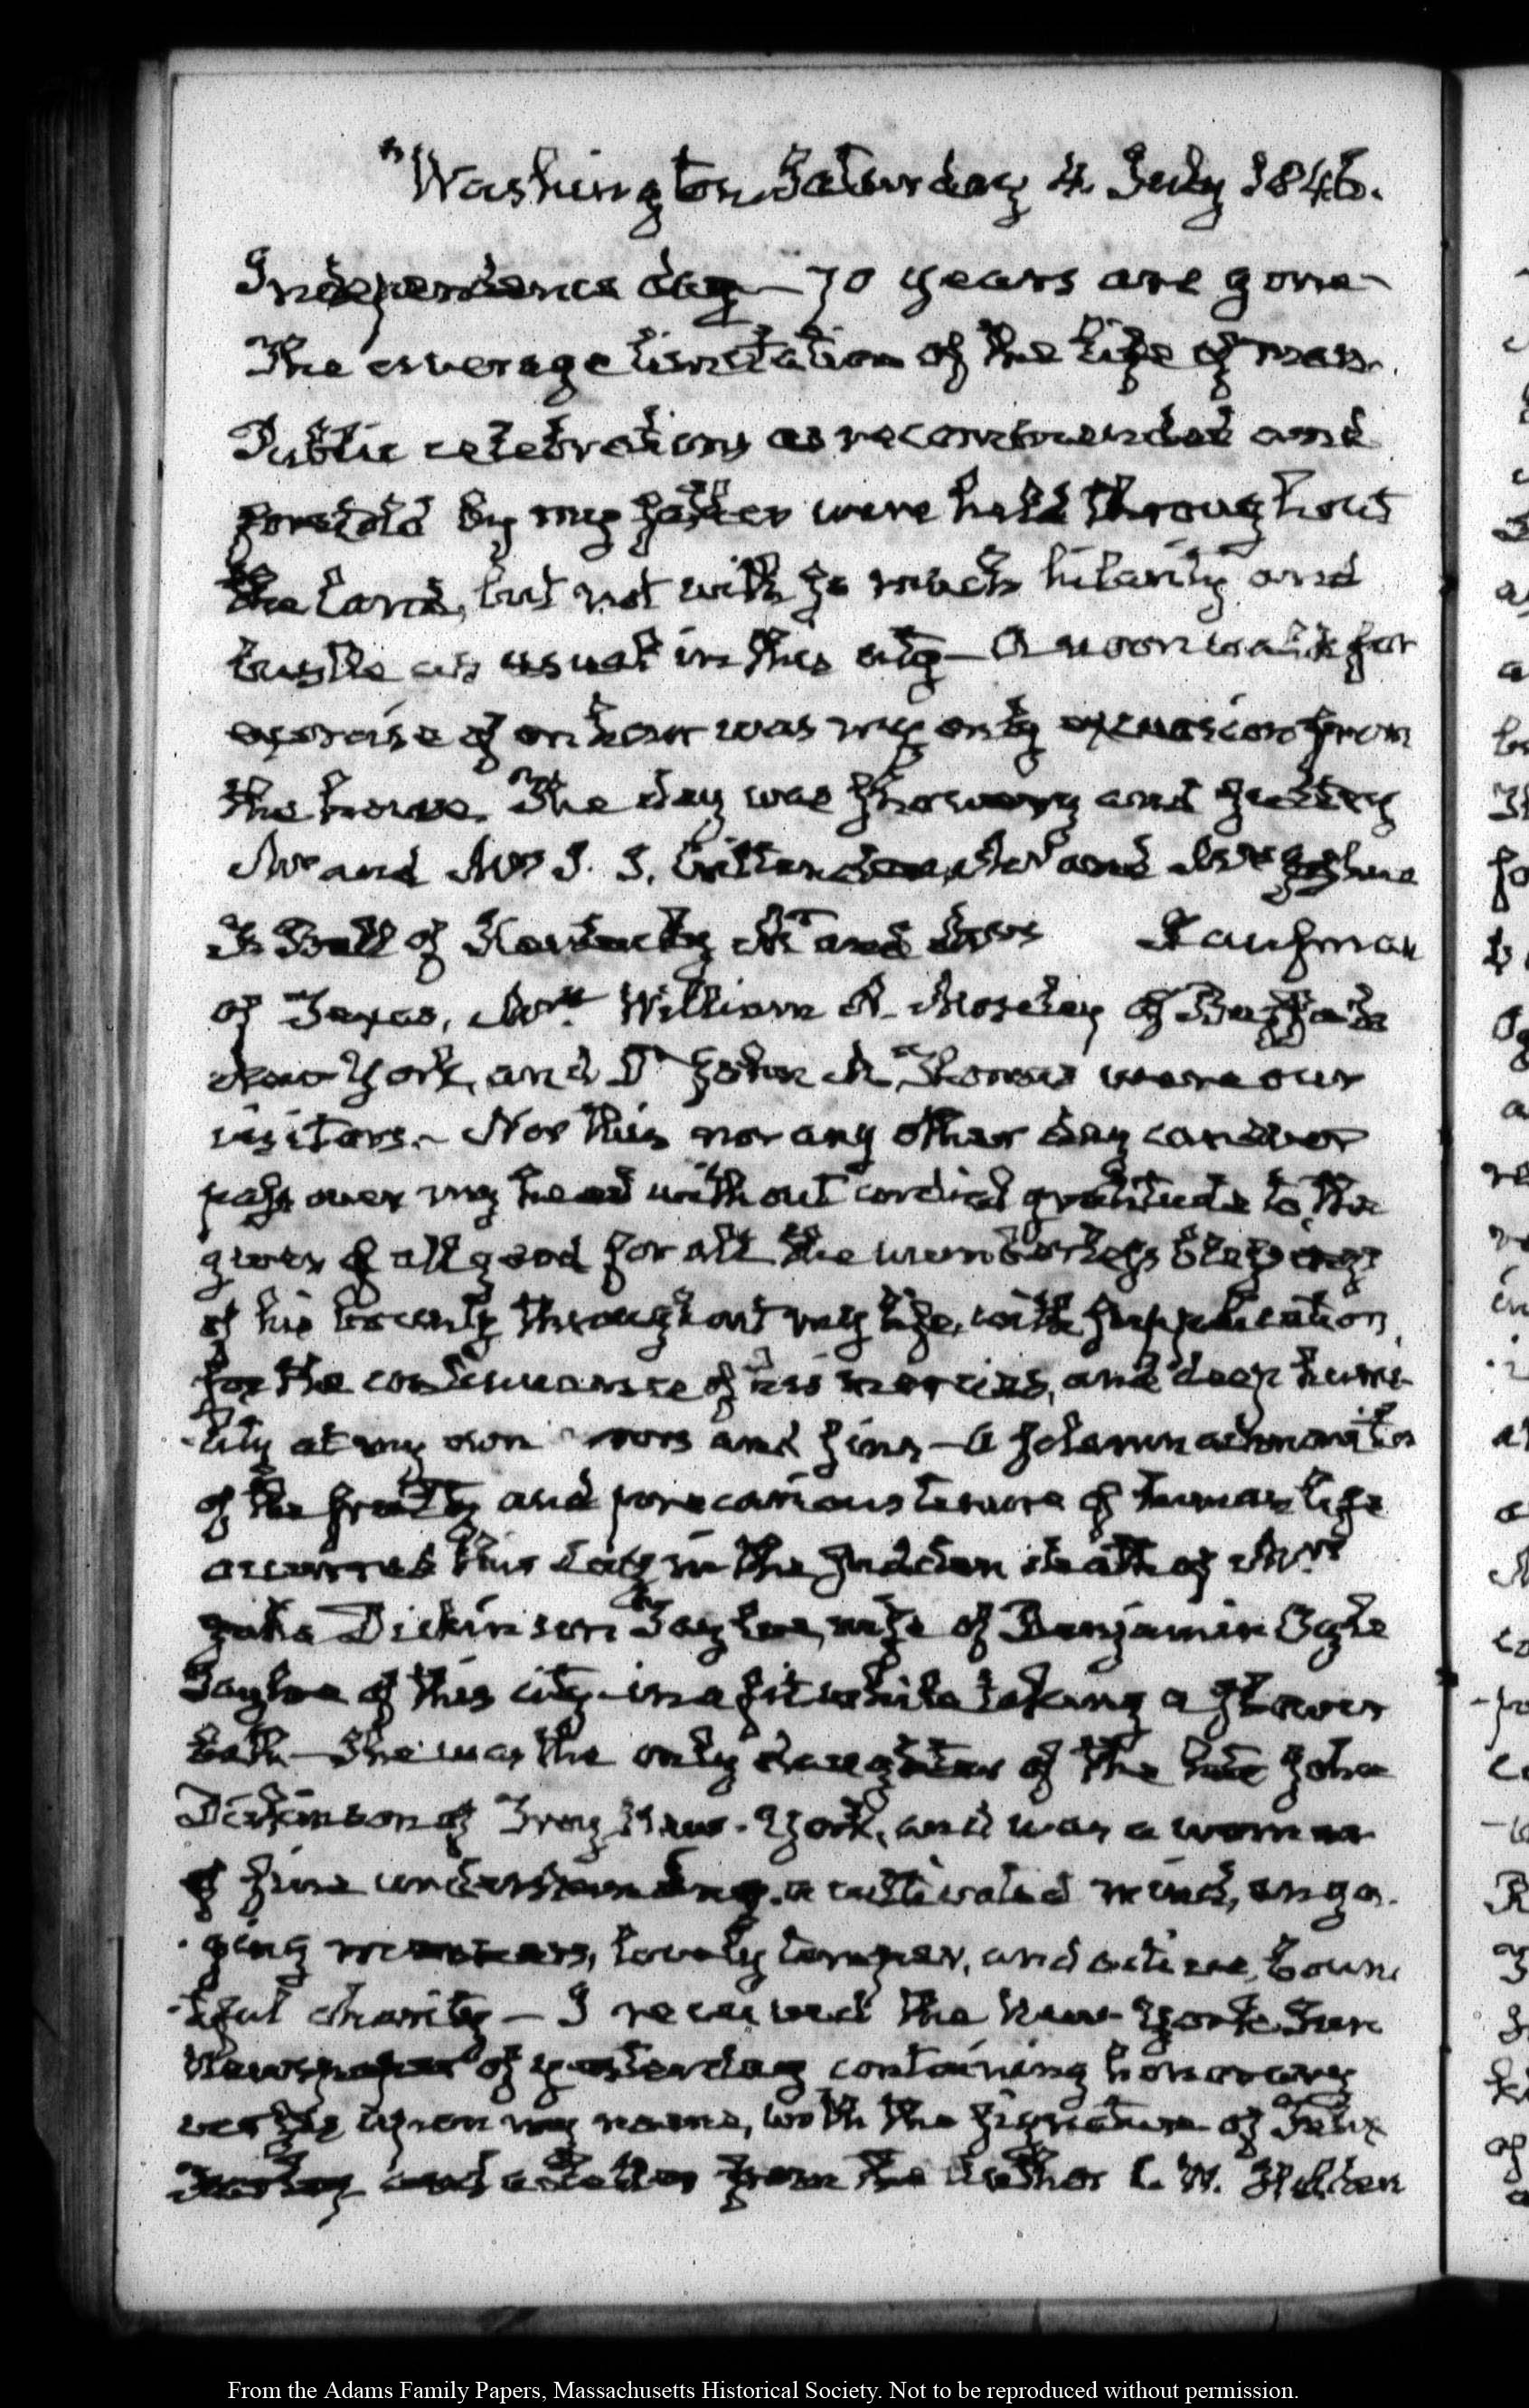 Washington Saturday 4. July 1846.
Independence day — 70 years are gone —
The average limitation of the life of man.
Public celebrations as recommended and
foretold by my father were held throughout
the land, but not with so much hilarity and
bustle as usual in this city — A noon walk for
exercise of an hour was my only excursion from
the house. The day was showery and sultry
Mr and Mrs J. J. Crittenden, Mr and Mrs Joshua
F. Bell of Kentucky Mr and Mrs Kaufman
of Texas, Mrs William A. Moseley of Buffalo
New York, and Dr John M. Thomas were our
visitors. — Nor this nor any other day can ever
pass over my head without cordial gratitude to the
giver of all good for all the numberless blessings
of his bounty throughout my life, with supplication
for the continuance of his mercies, and deep humi-
-lity at my own errors and sins — A solemn admonition
of the frailty and precarious tenure of human life
occurred this day in the sudden death of Mrs
Julia Dickinson Tayloe, wife of Benjamin Ogle
Tayloe of this city — in a fit while taking a shower
bath — She was the only daughter of the late John
Dickinson of Troy New-York, and was a woman
of fine understanding, a cultivated mind, enga-
-ging manners, lovely temper, and active, bounti
-tiful charity — I received the New-York Sun
Newspaper of yesterday containing honorary
verses upon my name, with the signature of
and a letter from the Author C. W.